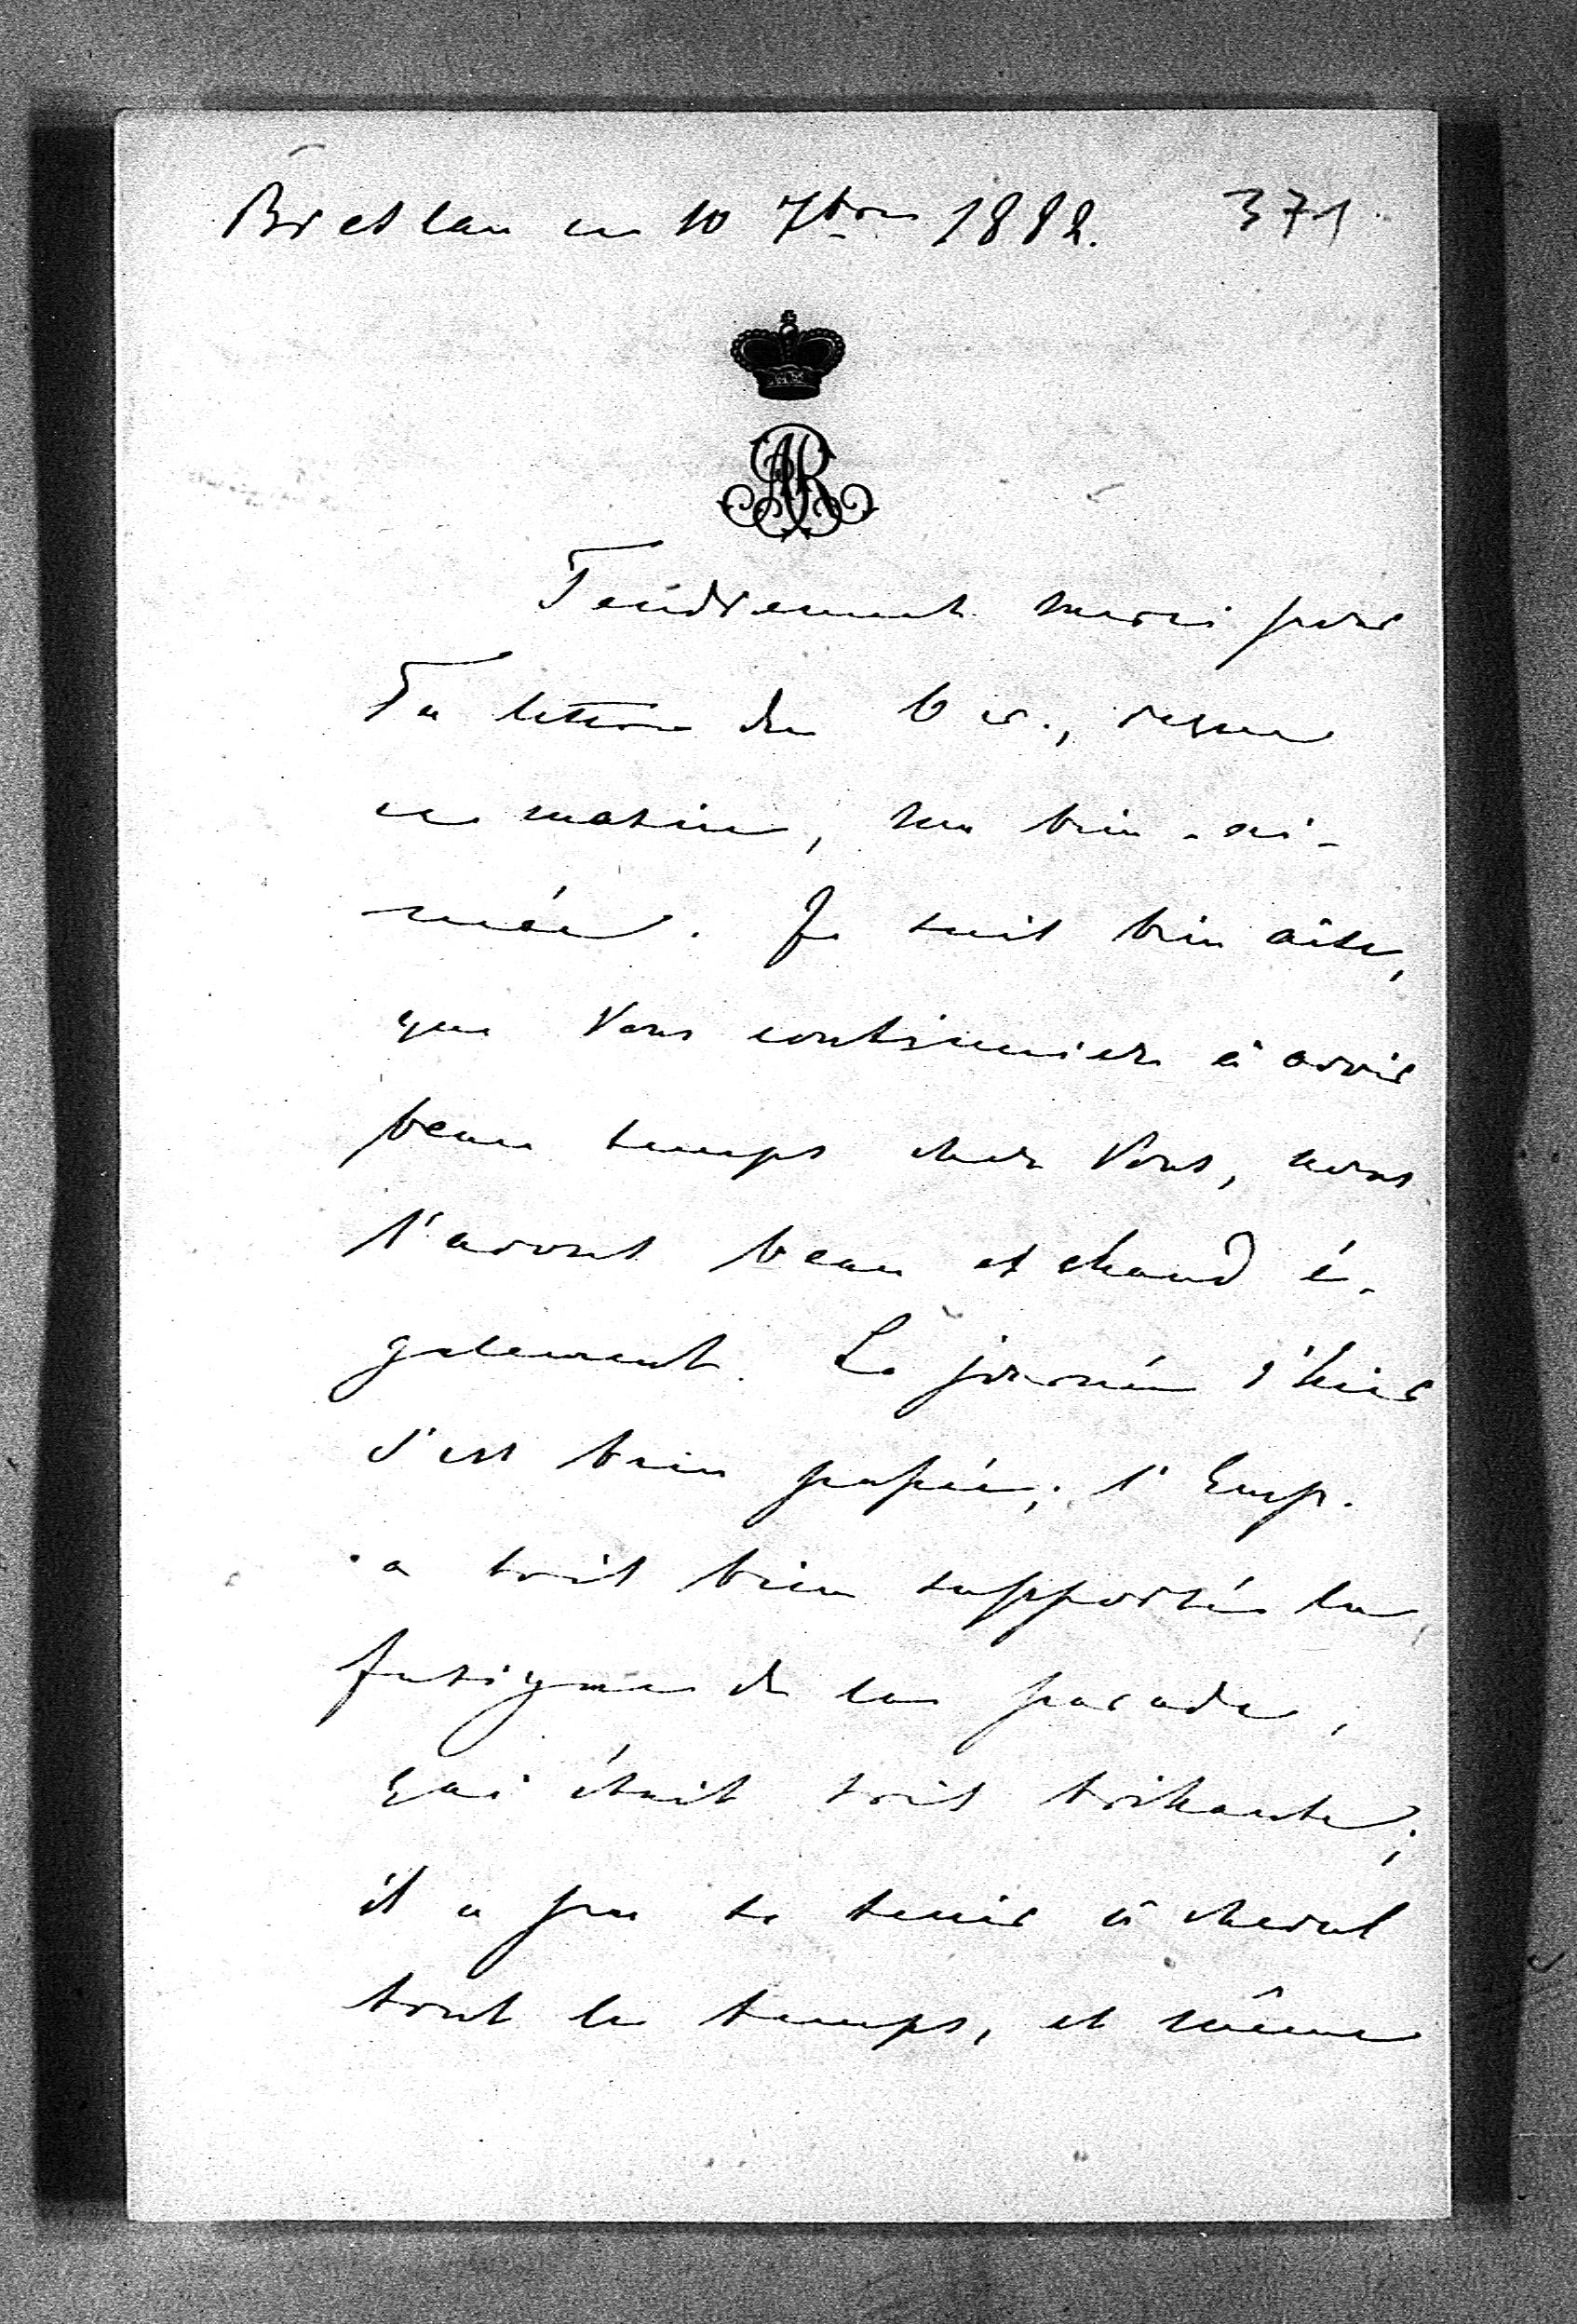 Breslau ce 10 7bre 1882. 371
AR
Tendrement merci pour
Ta lettre du 6 cr., reçue
ce matin, ma bien-ai-
mée. Je suis bien aise,
que Vous continuiez à avoir
beau temps chez Vous, nous
l'avons beau et chaud é-
galement. La journée d'hier
s'est bien passée; l'Emp.
a très bien supporté la
fatigue de la parade,
qui était très brillante;
il a pu se tenir à cheval
tout le temps, et même